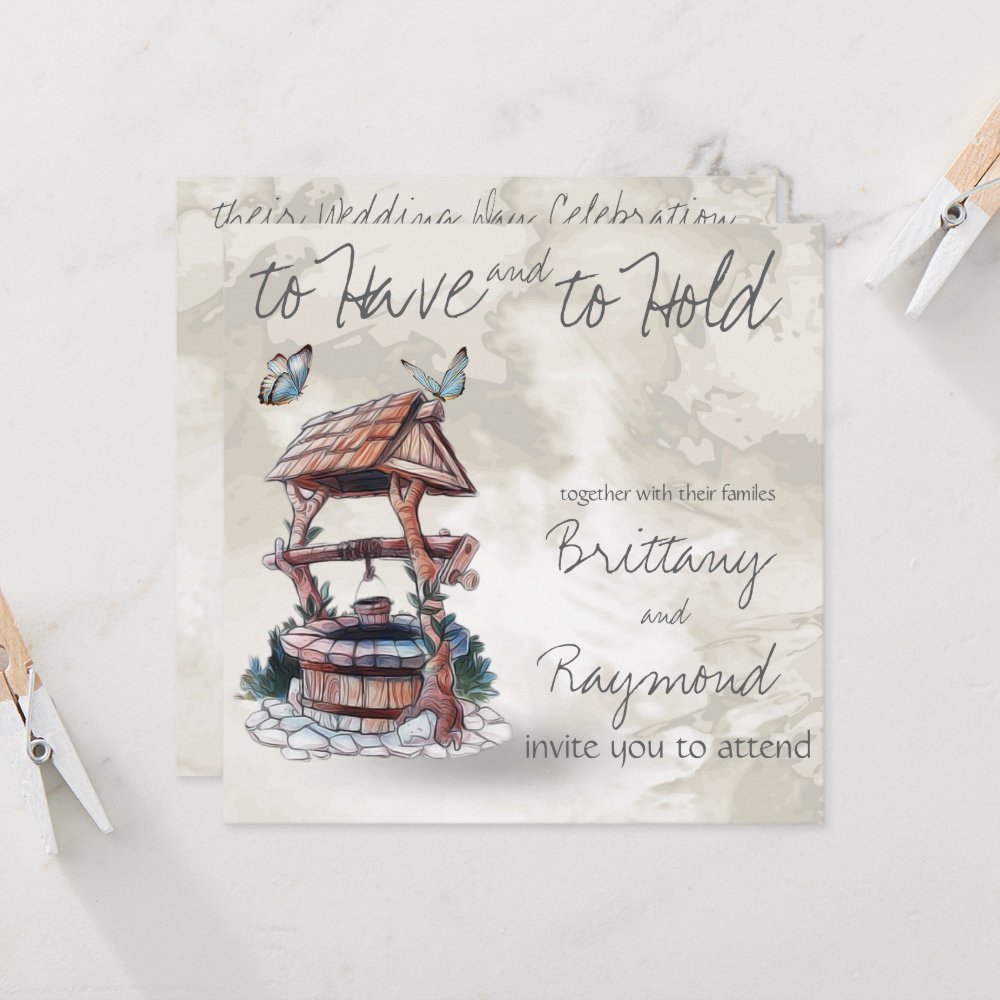 their Wedding Day Celebration
to Have and to Hold
together with their familes
Brittany
and
Raymond
invite you to attend